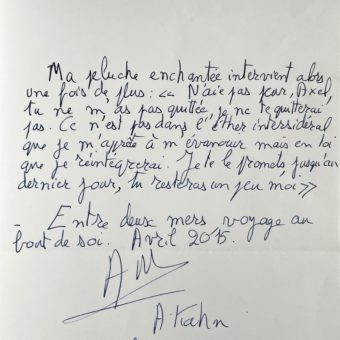 Ma peluche enchantée intervient alors
une fois de plus : << N'aie pas peur, Axel,
tu ne m'as pas quittée, je ne te quitterai
pas. Ce n'est pas dans l'éther intersidéral
que je m'apprête à m'évanouir mais en toi
que je réintégrerai. Je te le promets jusqu'au
dernier jour, tu resteras un peu moi >>
- Entre deux mers voyage au
bout de soi. Avril 2015.
A. Kahn